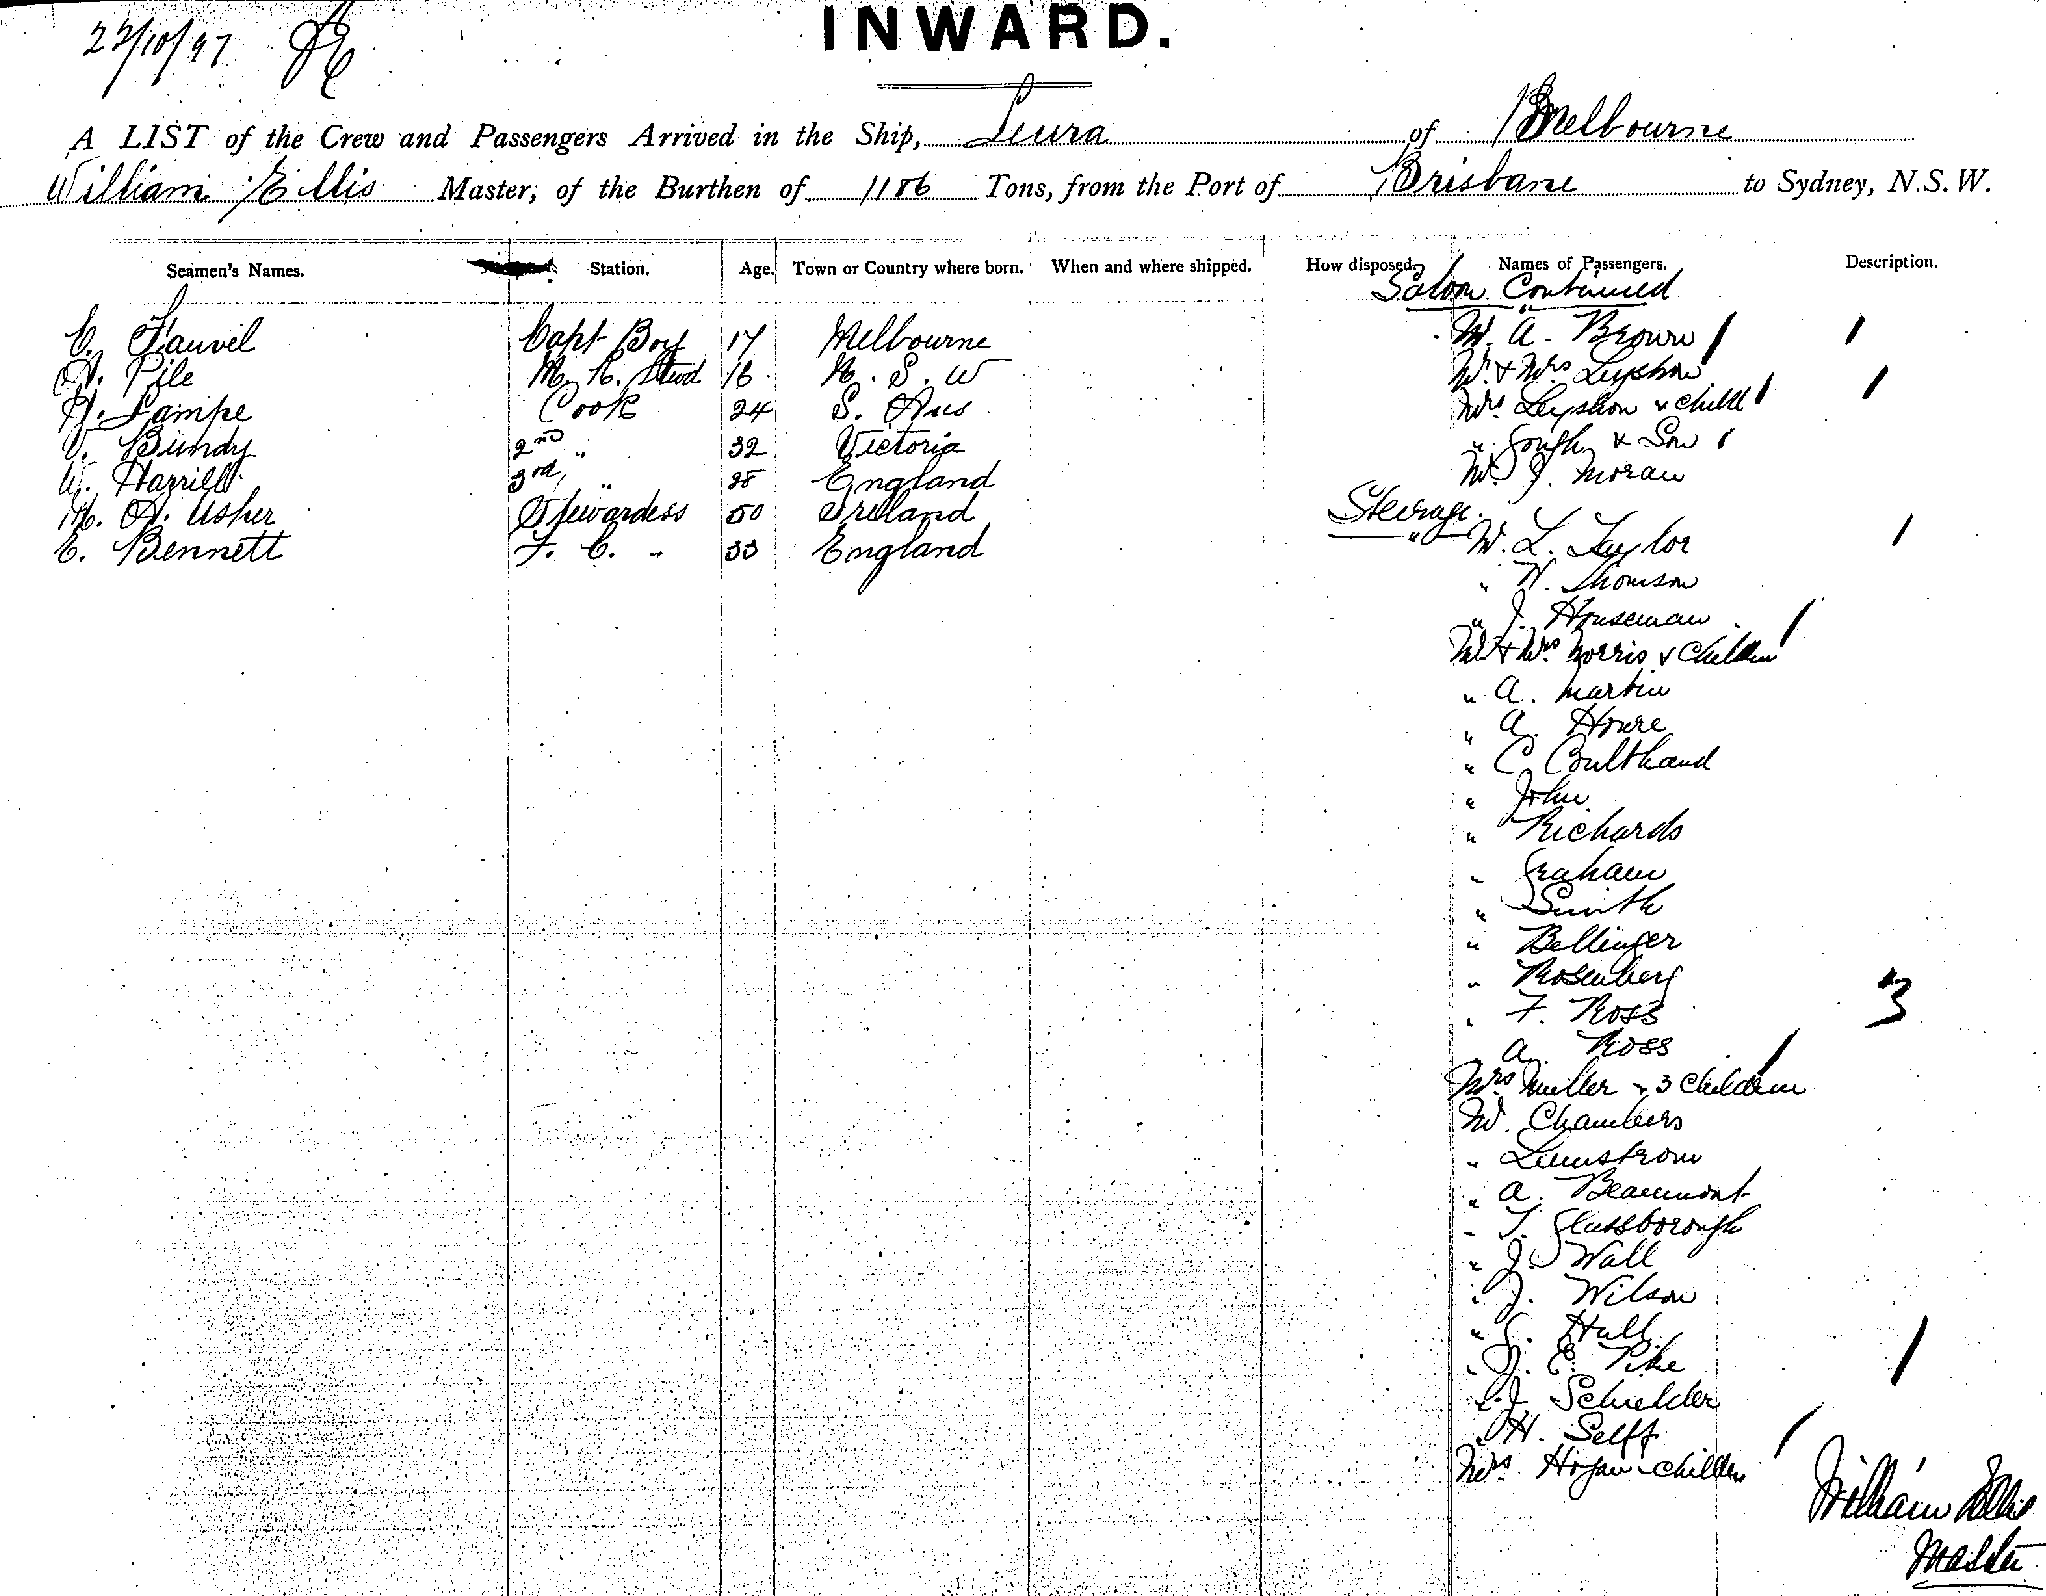 22/10/97
INWARD.
A LIST of the Crew and Passengers Arrived in the Ship, Leura of Melbourne
William Ellis Master, of the Burthen of 1186 Tons, from the Port of Brisbane to Sydney, N.S.W.
Seamen's Names. Station. Age. Town or Country where born. When and where shipped. How disposed. Names of Passengers. Description.
Saloon Continued
C. Fauvel Capt Boy 17 Melbourne
A. Pile M. R. Stwd 16 N. S. W
H. Lampe Cook 24 S. Aus
V. Bundy 2nd " 32 Victoria
W. Harrill 3rd " 28 England
M. A. Usher Stewardess 50 Ireland
E. Bennett F. C. " 33 England
Mr. A. Brown 1
Mr. & Mrs Leyshon
Mrs Leyshon & child 1
" Gough & Son
Mr. J. Moran
Steerage
Mr. L. Taylor 1
" W. Thomson
" J. Houseman
Mr. & Mrs. Norris & Children
" A. Martin
" A. Houre
" C. Coulthard
" John
" Richards
" Graham
" Smith
" Bellinger
" Rosenberg
" F. Ross 3
" A. Ross
Mrs Muller & 3 Children
Mr. Chambers
" Lumstrom
" A. Beaumont
" T. Glassborough
" J. Wall
" J. Wilson
" Hull
" E. Pike 1
" J. Schielder
" H. Selff
Mrs. Hogan & children
William Ellis
Master